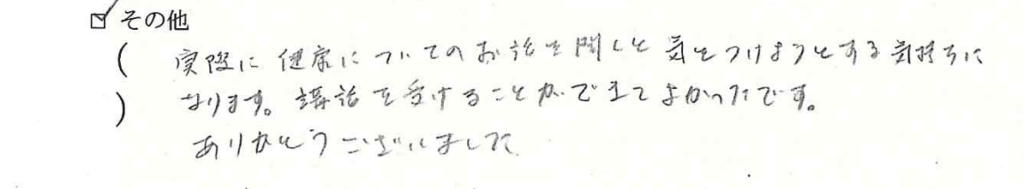 ☑ その他
( 実際に健康についてのお話を聞くと気をつけようとする気持ちに
) なります。講話を受けることができてよかったです。
ありがとうございました